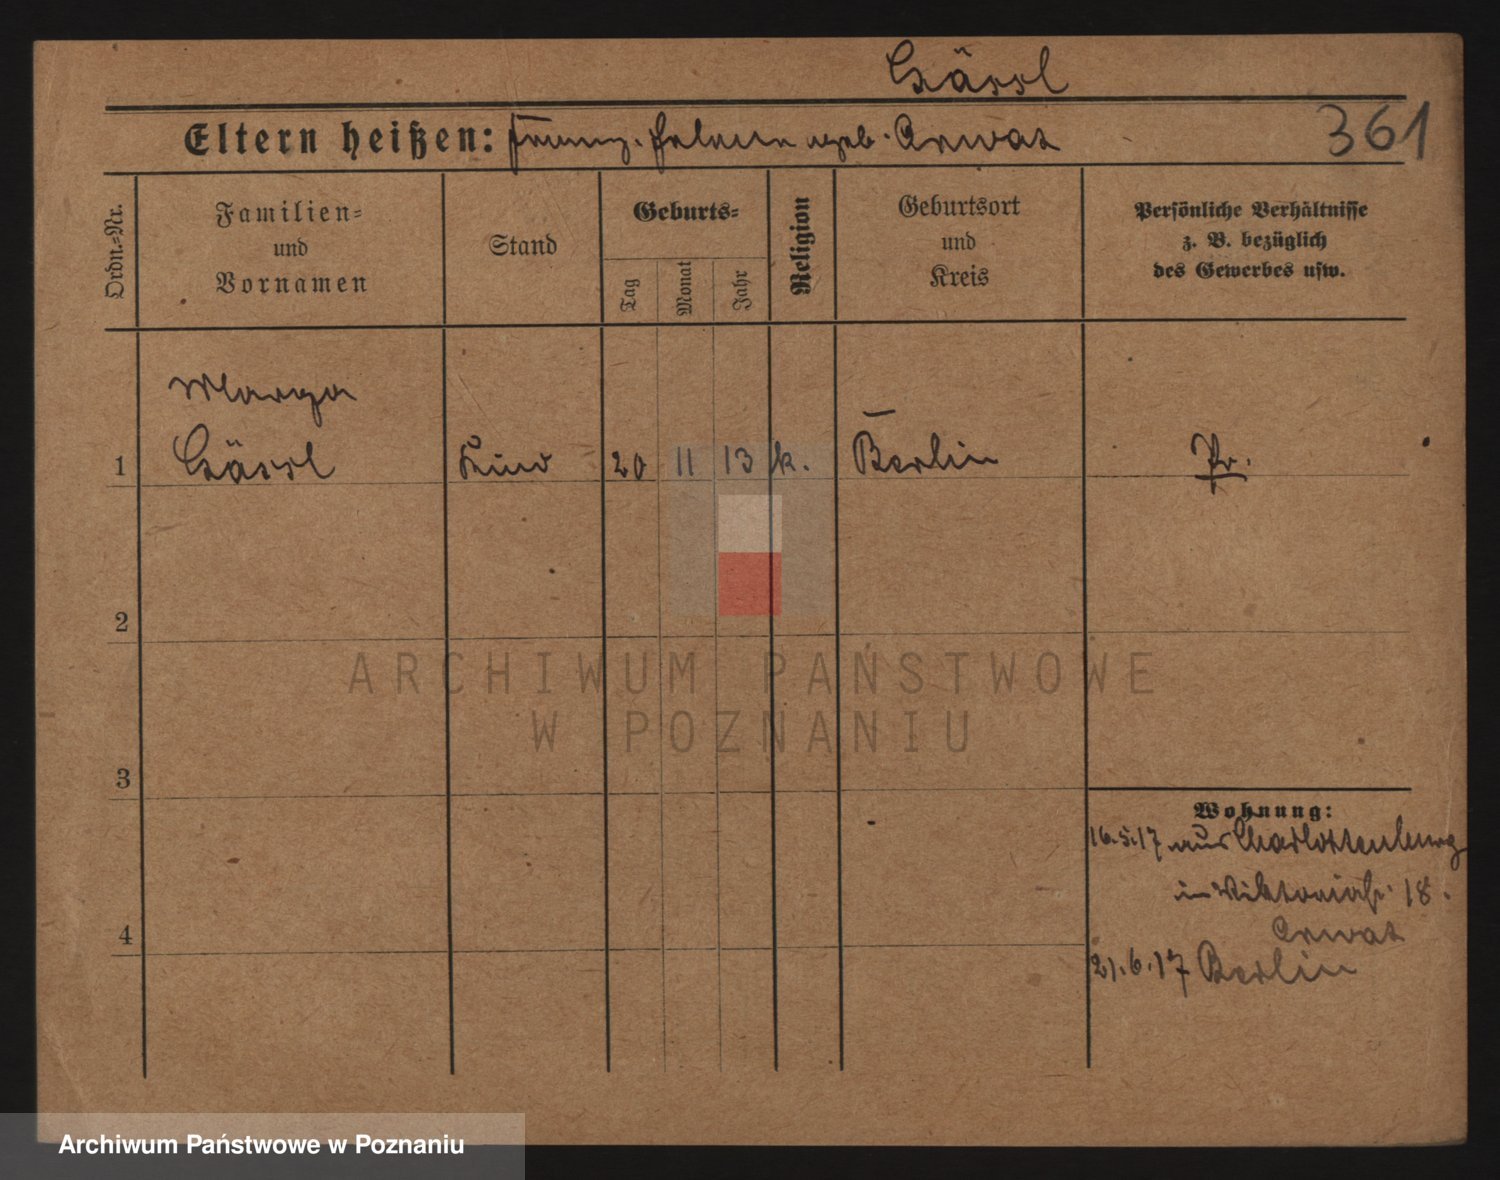 Gässl
Eltern heißen: Franz. Helene geb. Arwat
361
Ordn.-Nr.
Familien-
und
Vornamen
Stand
Geburts-
Tag
Monat
Jahr
Religion
Geburtsort
und
Kreis
Persönliche Verhältnisse
z. B. bezüglich
des Gewerbes usw.
Marga
1 Gässl Kind 20 11 13 k. Berlin Pr.
2
ARCHIWUM PAŃSTWOWE
W POZNANIU
3
Wohnung:
16.5.17 aus Charlottenburg
in Viktoriastr. 18.
4
Arwat
21.6.17 Berlin
Archiwum Państwowe w Poznaniu